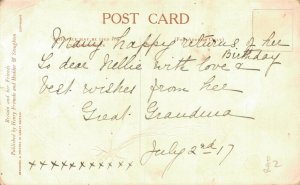 POST CARD
Many happy returns of her
Birthday
To dear Nellie with love &
best wishes from her
Great Grandma
July 2nd 17
x x x x x x x x x x x x
£2
Published by Henry Frowde and Hodder & Stoughton